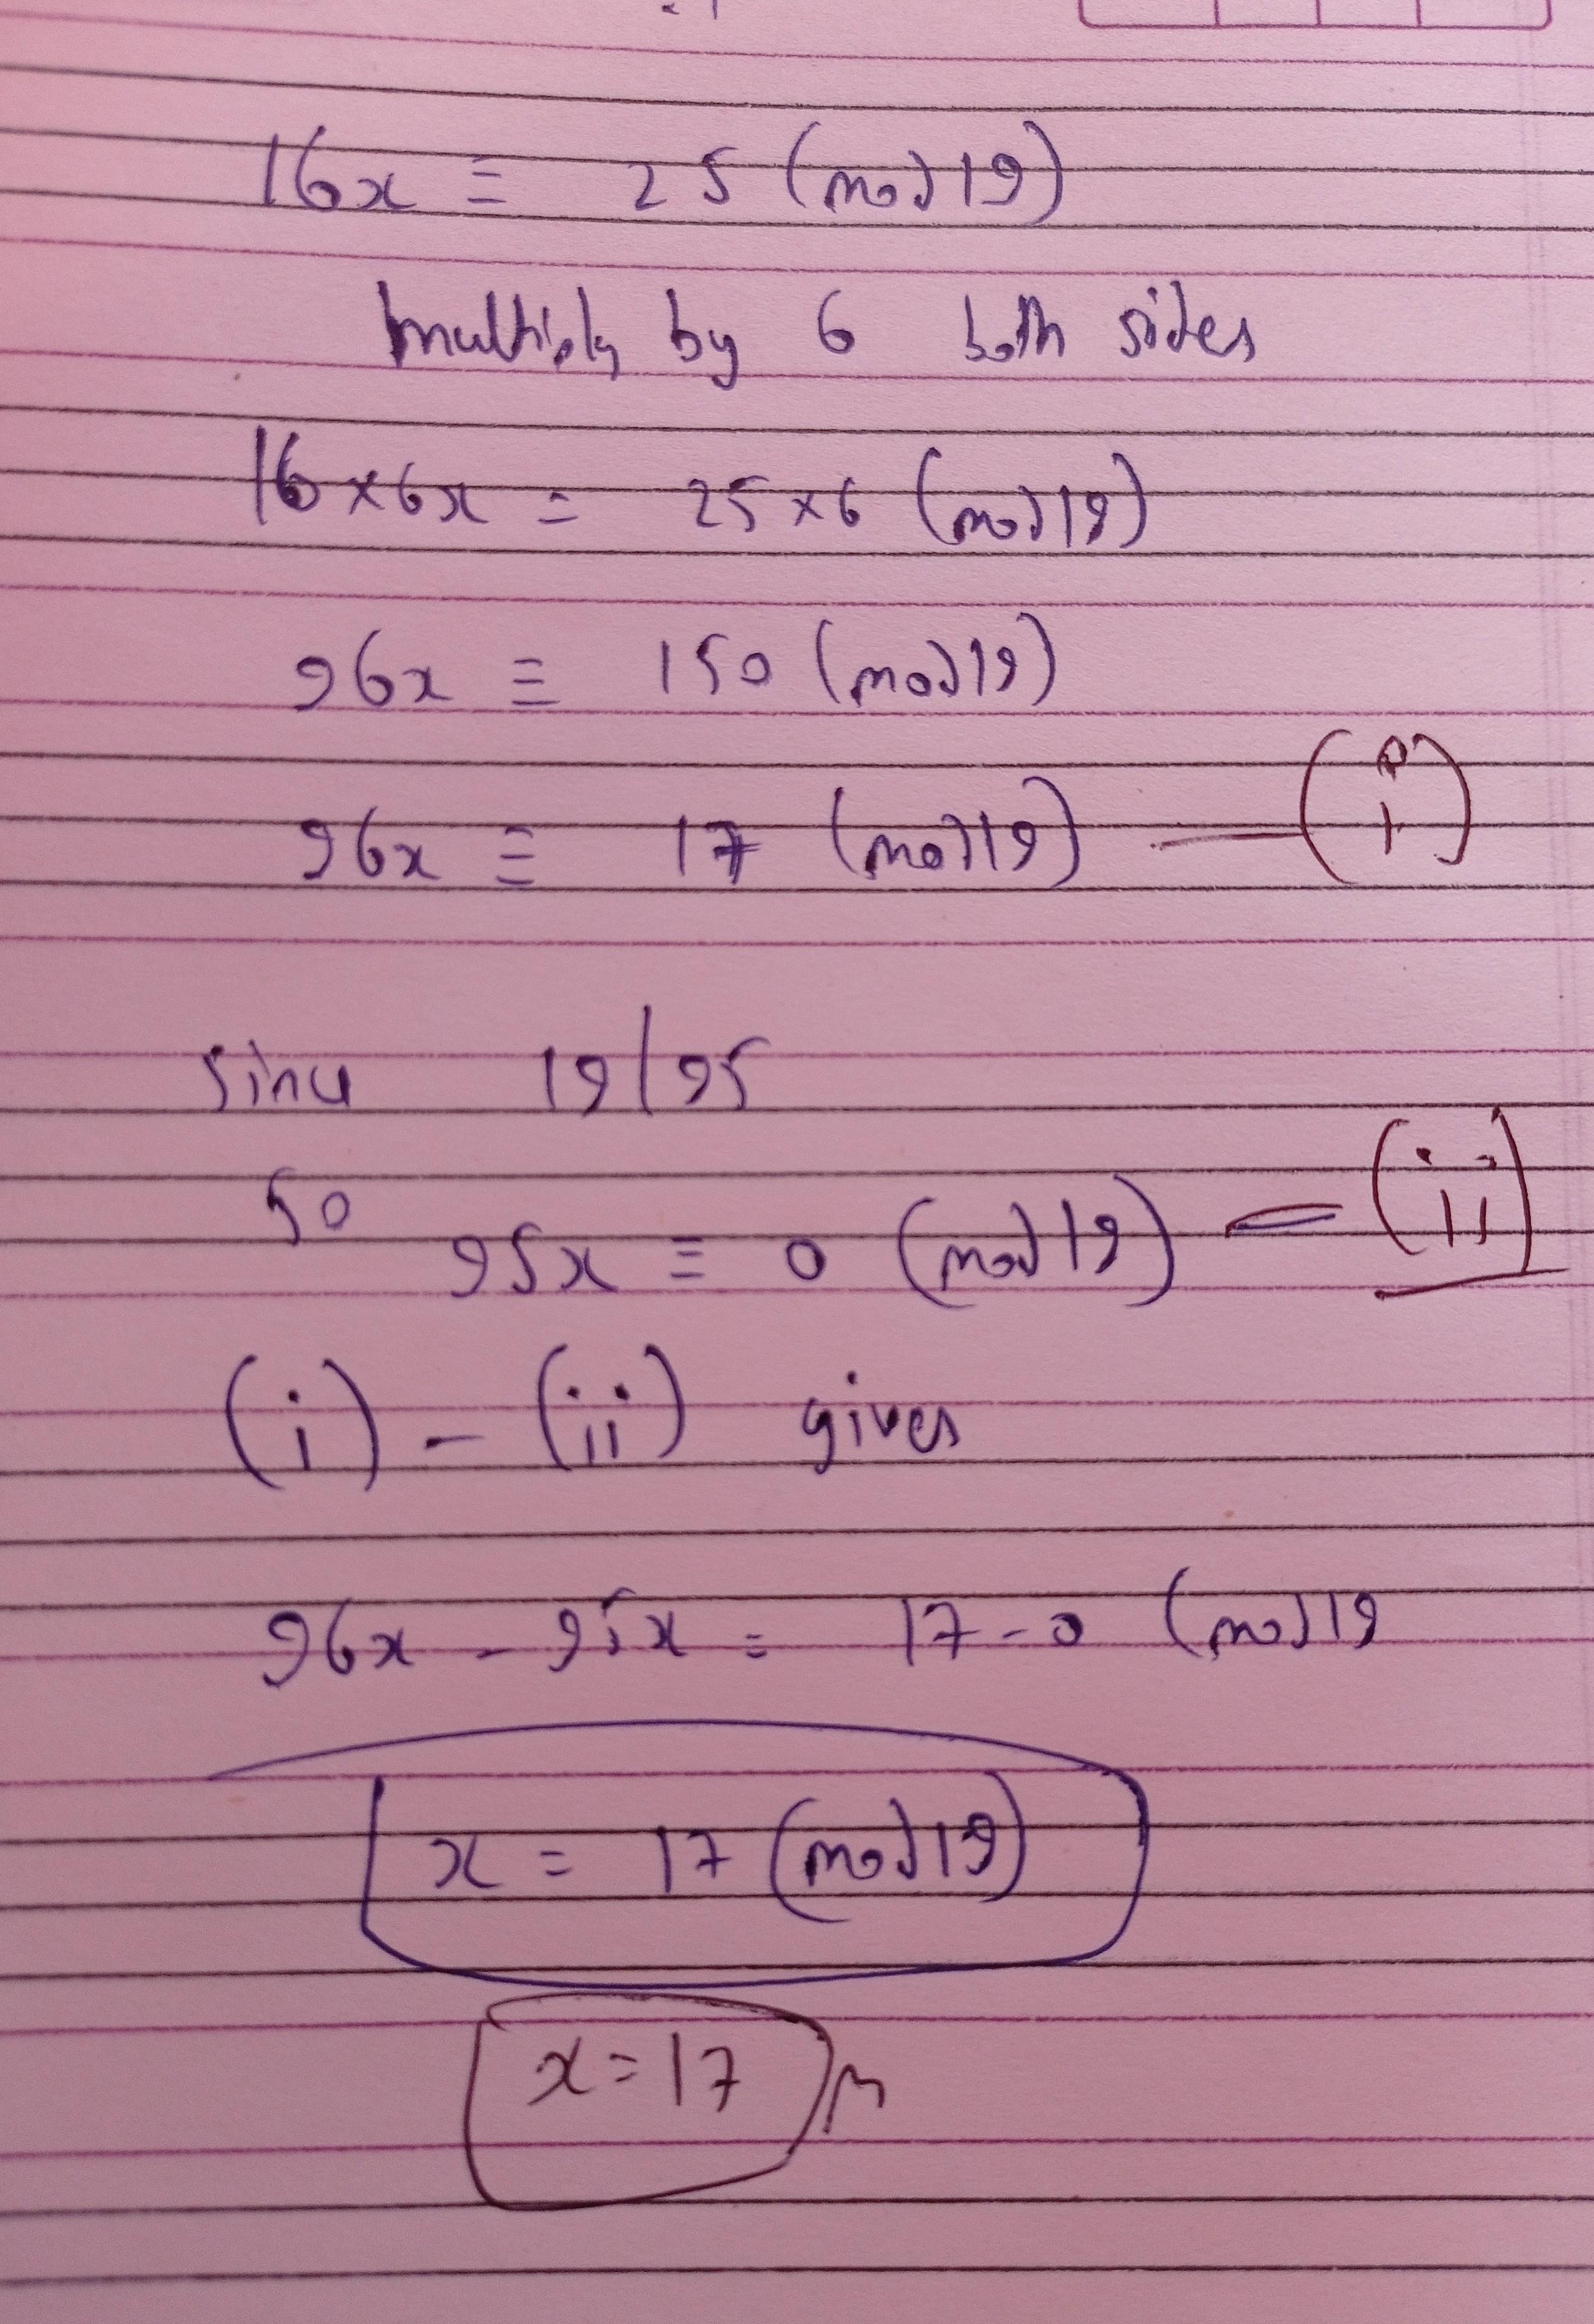 16x ≡ 25 (mod 19)
multiply by 6 both sides
16×6x = 25×6 (mod 19)
96x ≡ 150 (mod 19)
96x ≡ 17 (mod 19) — (i)
since 19|95
so
95x ≡ 0 (mod 19) — (ii)
(i) - (ii) gives
96x - 95x = 17-0 (mod 19
x = 17 (mod 19)
x = 17